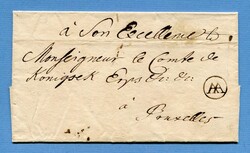 à Son Excellence
Monseigneur le Comte de
Konigsek Erps
à
Bruxelles